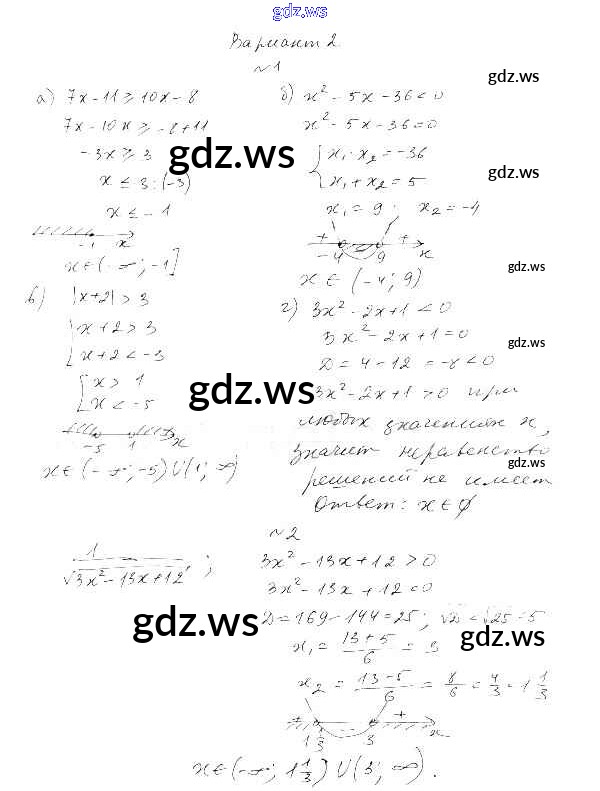 gdz.ws
Вариант 2
№1
а) 7x-11≥10x-8
7x-10x≥-8+11
-3x≥3
x≤3:(-3)
x≤-1
-1 x
x∈(-∞;-1]
б) x²-5x-36<0
x²-5x-36=0
{x₁·x₂=-36
x₁+x₂=5
x₁=9; x₂=-4
+ - +
-4 9 x
x∈(-4;9)
в) |x+2|>3
[x+2>3
x+2<-3
[x>1
x<-5
-5 1 x
x∈(-∞;-5)∪(1;∞)
г) 3x²-2x+1<0
3x²-2x+1=0
D=4-12=-8<0
3x²-2x+1>0 при
любых значениях x,
значит неравенство
решений не имеет
Ответ: x∈∅
№2
1/√3x²-13x+12;
3x²-13x+12>0
3x²-13x+12=0
D=169-144=25; √D=√25=5
x₁=(13+5)/6=3
x₂=(13-5)/6=8/6=4/3=1 1/3
+ - +
1 1/3 3 x
x∈(-∞;1 1/3)∪(3;∞).
gdz.ws
gdz.ws
gdz.ws
gdz.ws
gdz.ws
gdz.ws
gdz.ws
gdz.ws
gdz.ws